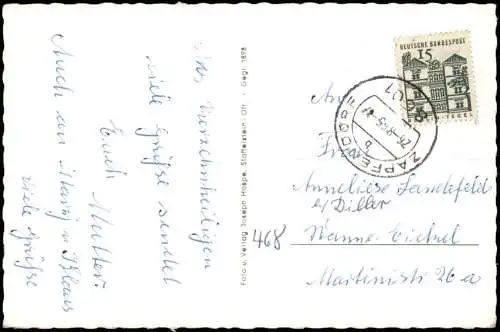 Aus Vierzehnheiligen
viele Grüße sendet
Euch Mutter.
Auch an Maria u. Klaus
viele Grüße
Foto u. Verlag Joseph Haape, Staffelstein/Ofr. - Gegr. 1898
DEUTSCHE BUNDESPOST
15
TEGEL
ZAPFENDORF
b
An
Frau
Anneliese Landefeld
b/ Diller
468 Wanne-Eickel
Martinistr 26 a